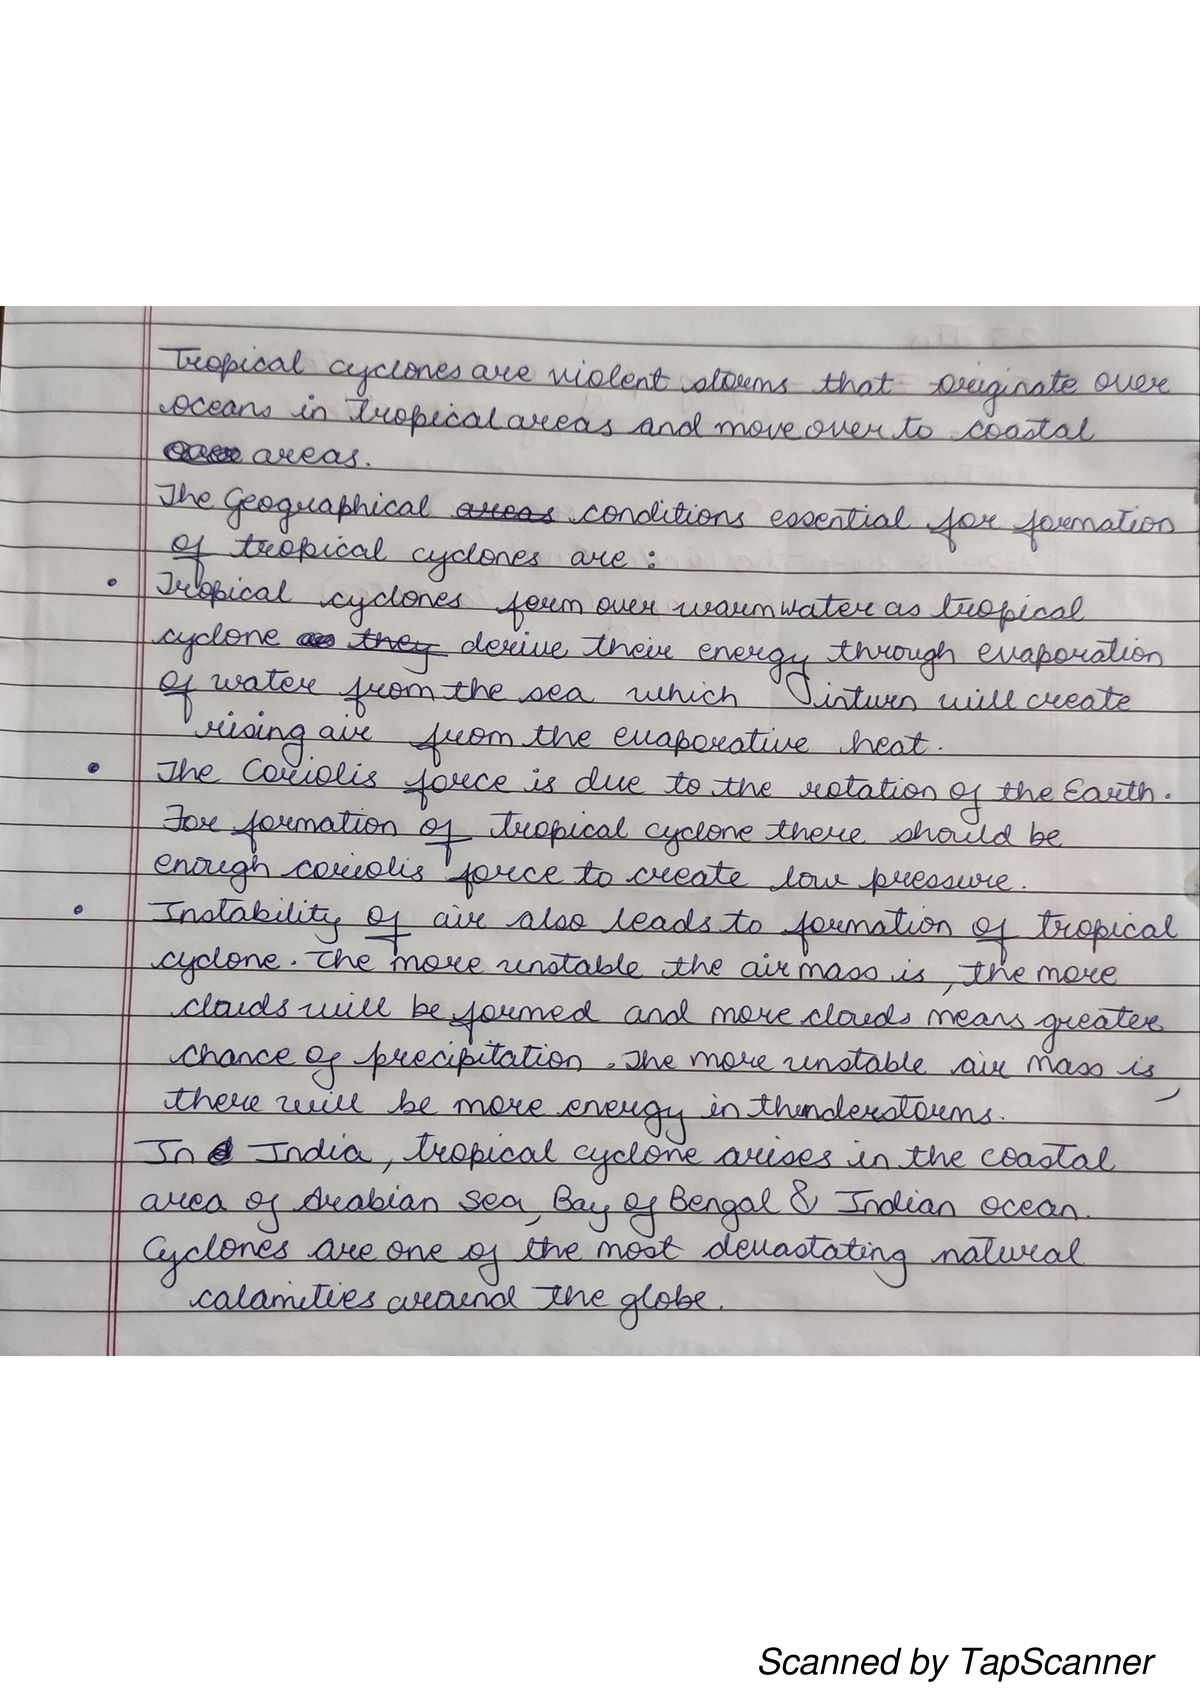 Tropical cyclones are violent storms that originate over
oceans in tropical areas and move over to coastal
areas.
The Geographical areas conditions essential for formation
of tropical cyclones are :
• Tropical cyclones form over warm water as tropical
cyclone as they derive their energy through evaporation
of water from the sea which inturn will create
rising air from the evaporative heat.
• The Coriolis force is due to the rotation of the Earth.
For formation of tropical cyclone there should be
enough coriolis force to create low pressure.
• Instability of air also leads to formation of tropical
cyclone. The more unstable the air mass is, the more
clouds will be formed and more clouds means greater
chance of precipitation. The more unstable air mass is,
there will be more energy in thunderstorms.
In India, tropical cyclone arises in the coastal
area of Arabian Sea, Bay of Bengal & Indian ocean.
Cyclones are one of the most devastating natural
calamities around the globe.
Scanned by TapScanner